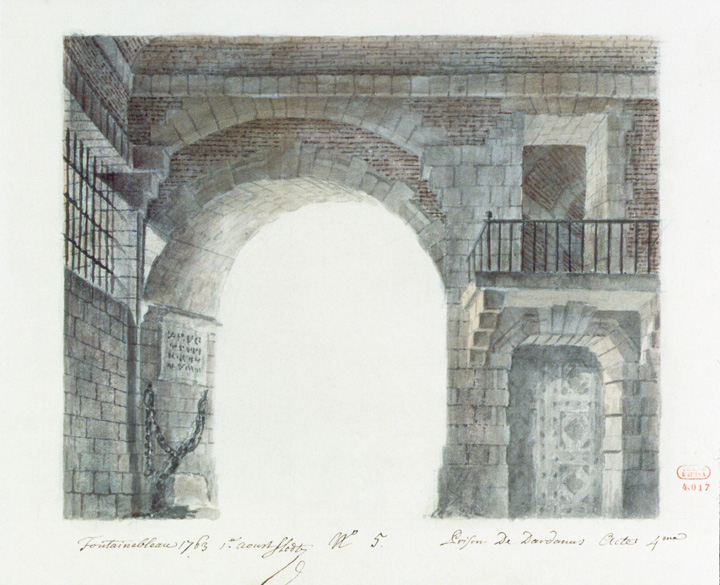 Fontainebleau 1763 1er aoust Slodtz Nº 5. Prison De Dardanus Acte 4me
4.017